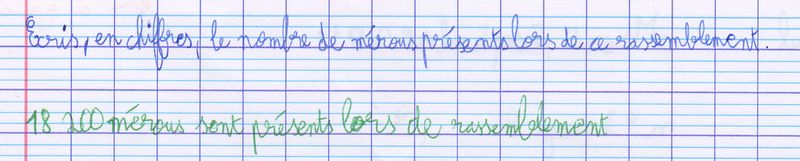 Écris, en chiffres, le nombre de mérous présents lors de ce rassemblement.
18 200 mérous sont présents lors de rassemblement